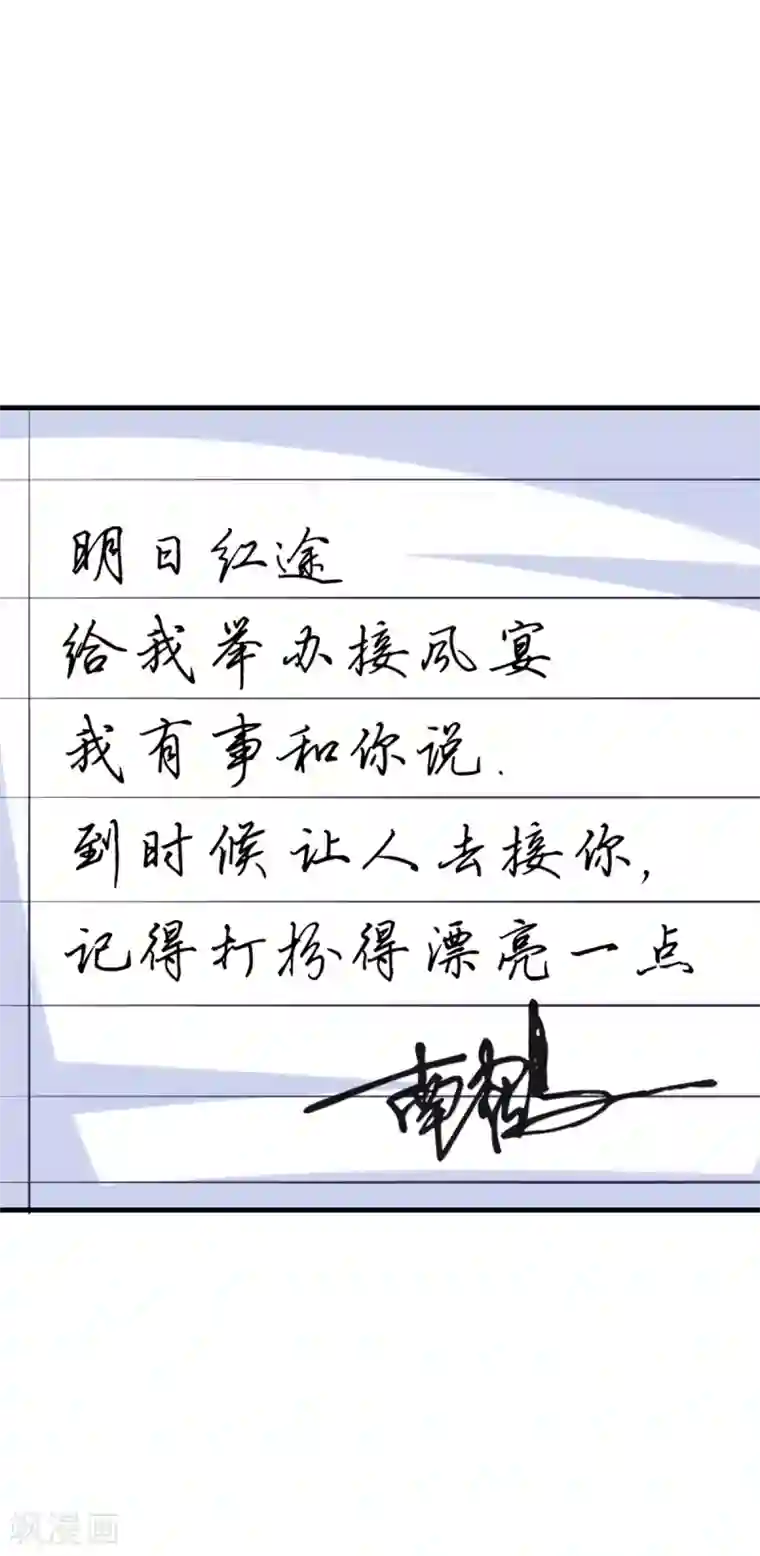 明日红途
给我举办接风宴
我有事和你说.
到时候让人去接你,
记得打扮得漂亮一点
飒漫画